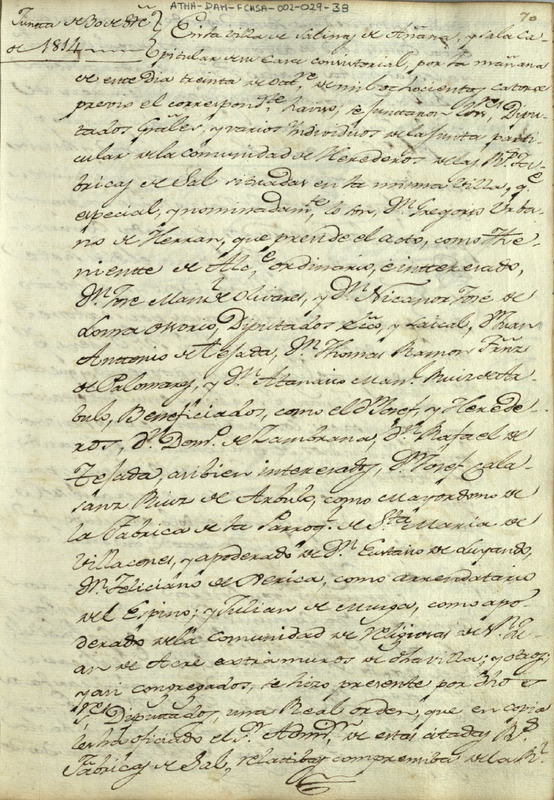 ATHA-DAH-FCHSA-002-029-38
70
Junta de 30 de 8bre
de 1814
En la Villa de Salinas de Añana, y sala Ca
pitular de su Casa consistorial, por la mañana
de este dia treinta de de mil ochocientos catorze
previo el correspondte haviso, se juntaron los Sres Dipu
tados Grales, y varios individuos de la Junta parti
cular de la comunidad de Herederos de las Rs Fa
bricas de Sal sitiadas en la misma villa, qe
especial, y nominadamte lo son, Dn Gregorio Urba
no de Herran, que preside el acto, como The
niente de Alce ordinario, e intteresado,
Dn José Manl de Olivares, y Dn Nicanor José de
Loma Osorio, Diputados eccº, y Laical, Dn Juan
Anttonio de Tejada, Dn Thomas Ramon Frnz
de Palomares, y Dn Atanasio Manl Ruiz de Ar
bulo, Beneficiados, como el Dn Josef, y Herede
ros, Dn Domº de Zambrana, Dn Rafael de
Tejada, ambien interesados, Dn Josef Cala
sanz Ruiz de Arbulo, como Mayordomo de
la Fabrica de la Parroqa de Sta Maria de
Villacones, y apoderado de Dn Eustasio de Luyando,
Dn Feliciano de Berica, como arrendatario
del Espino; y Julian de Murga, como apo
derado de la comunidad de Religiosas de Sn Ju
an de Acre extramuros de dha villa; y otros;
y asi congregados, se hizo presente por dhos
Sres Diputados, una Real orden, que en copia
les ha oficiado el Sr Admor de estas citadas Rs
Fabricas de Sal, relatiba, y comprensiba de la Rl